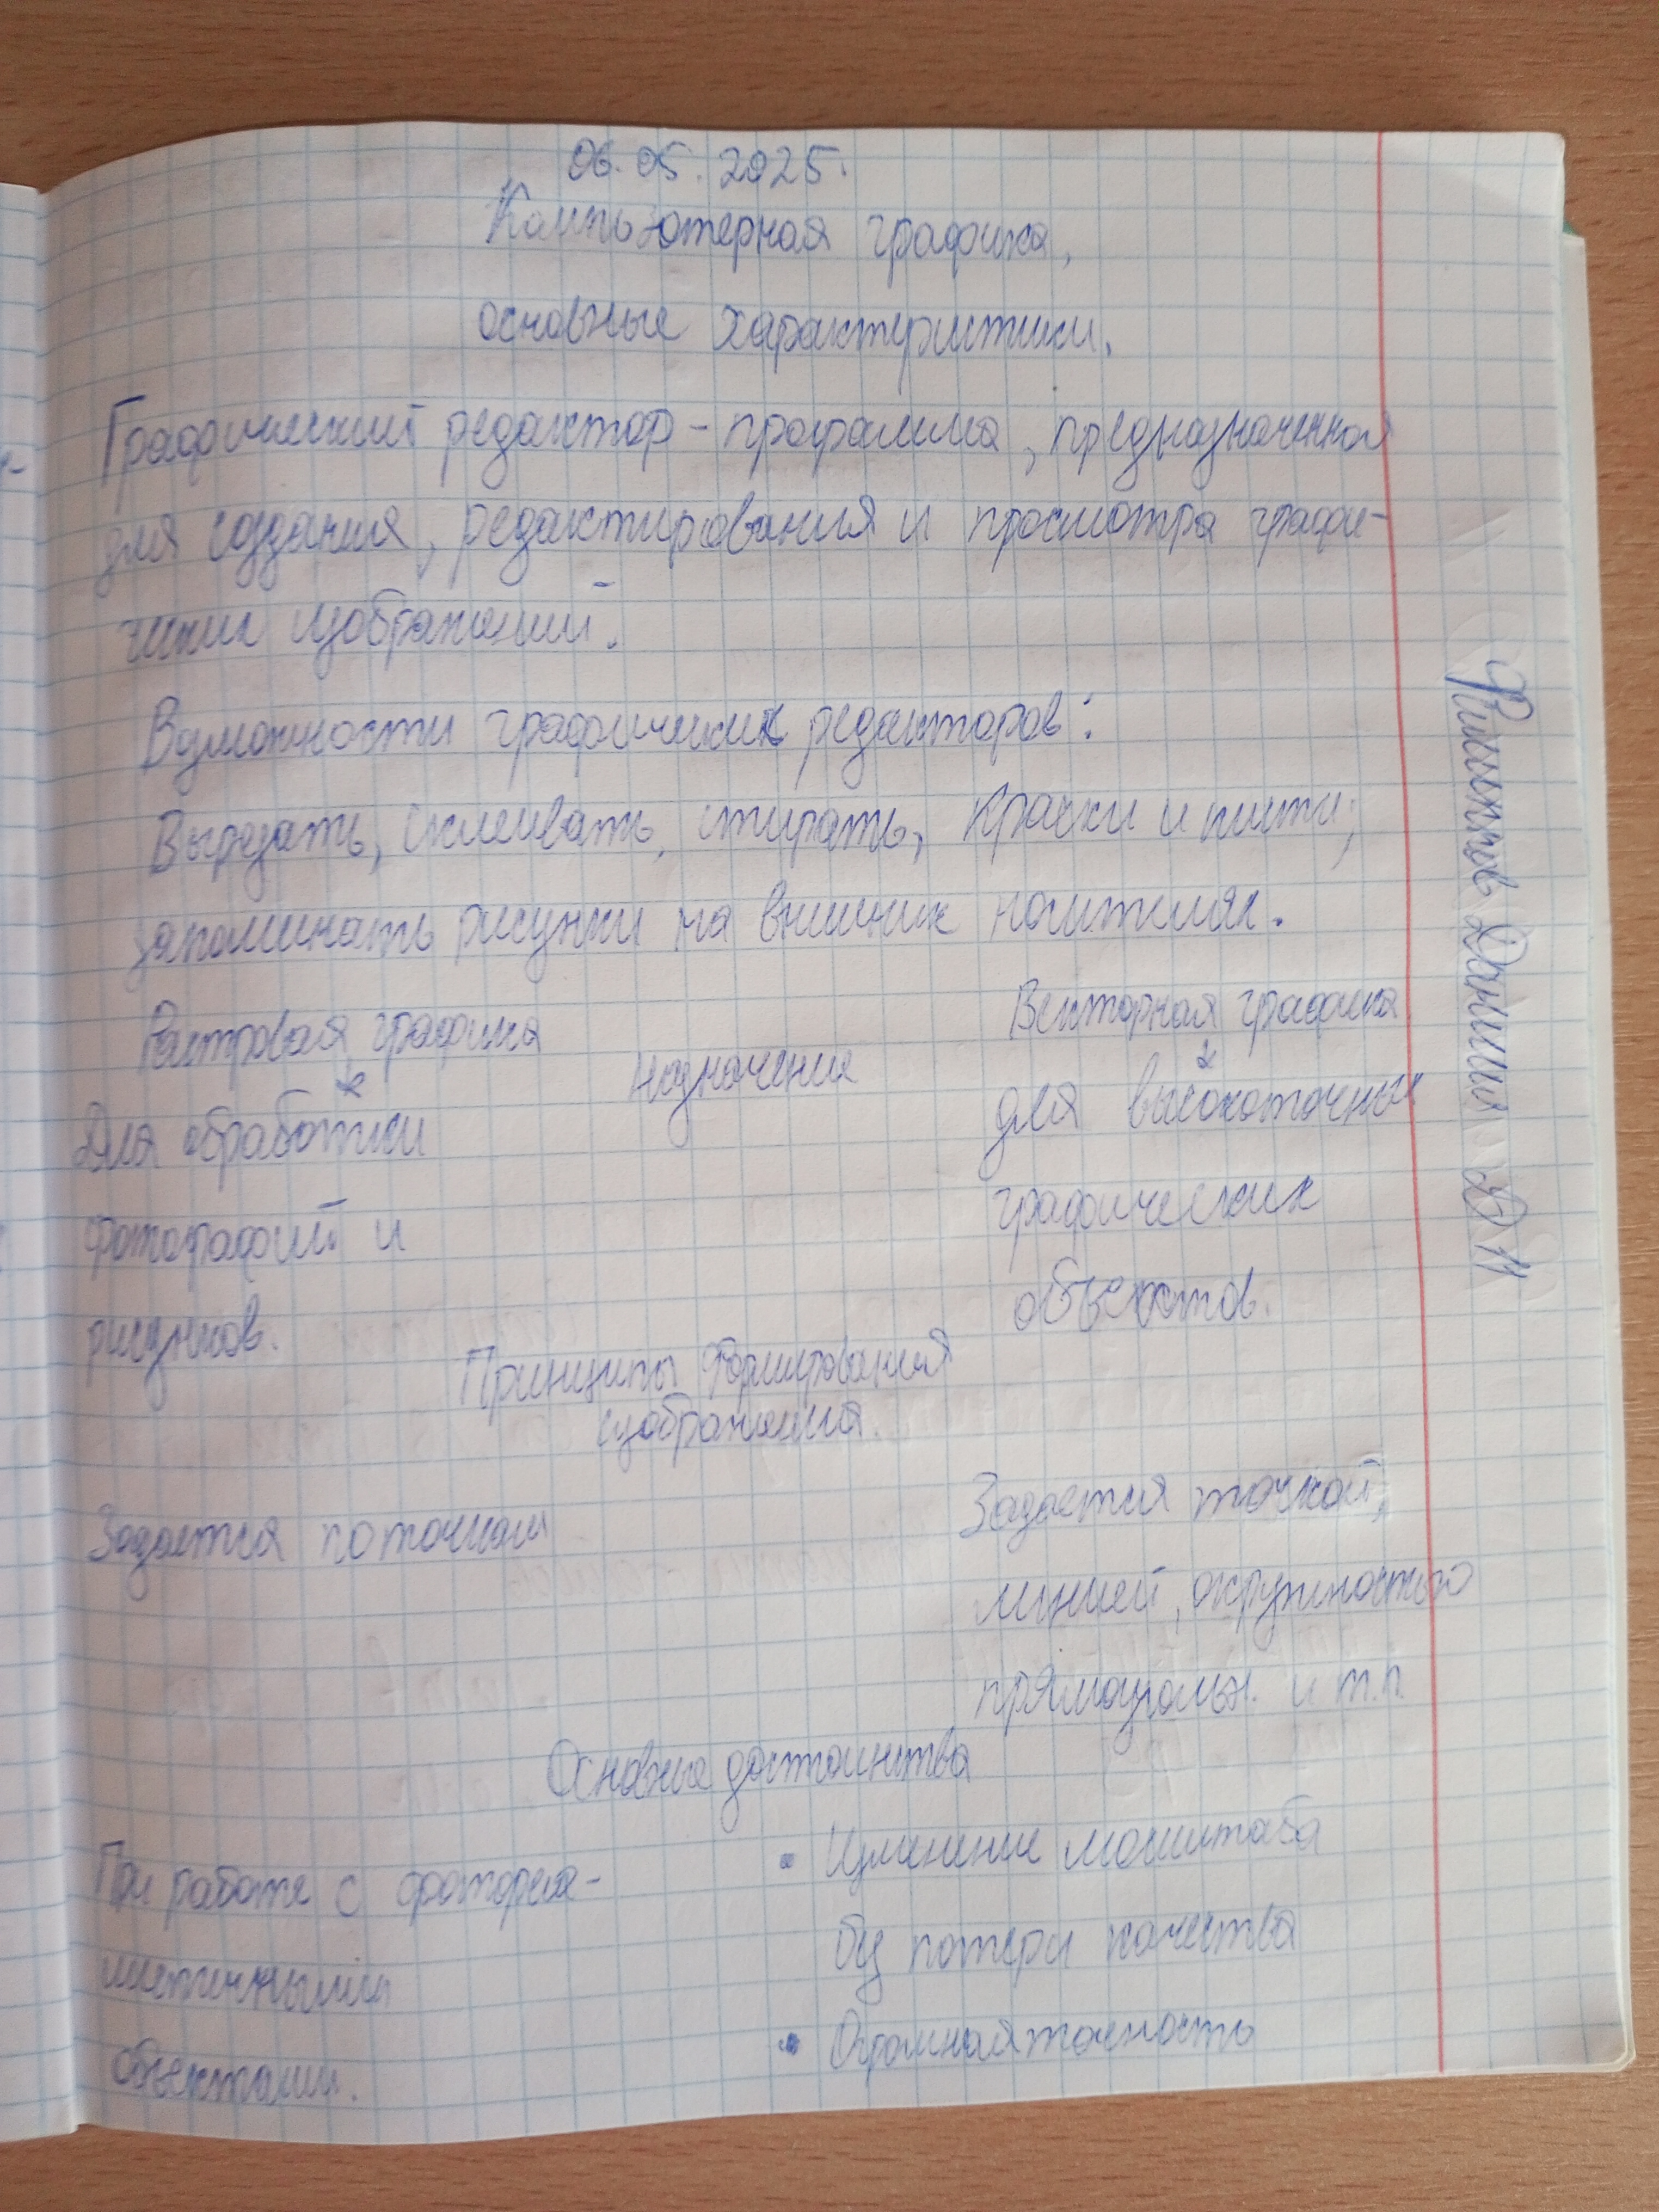 06.05.2025.
Компьютерная графика,
основные характеристики.
Графический редактор - программа, предназначенная
для создания, редактирования и просмотра графи-
ческих изображений.
Возможности графических редакторов:
Вырезать, склеивать, стирать, краски и кисти,
запоминать рисунки на внешних носителях.
Растровая графика
Назначение
Векторная графика
Для обработки
фотографий и
рисунков.
для высокоточных
графических
объектов.
Принципы формирования
изображения.
Задается по точкам
Задается точкой,
линией, окружностью
прямоугольн. и т.п.
Основные достоинства
При работе с фотореа-
листичными
объектами.
• Изменение масштаба
без потери качества
• Огромная точность
Филиппов Даниил Д 11